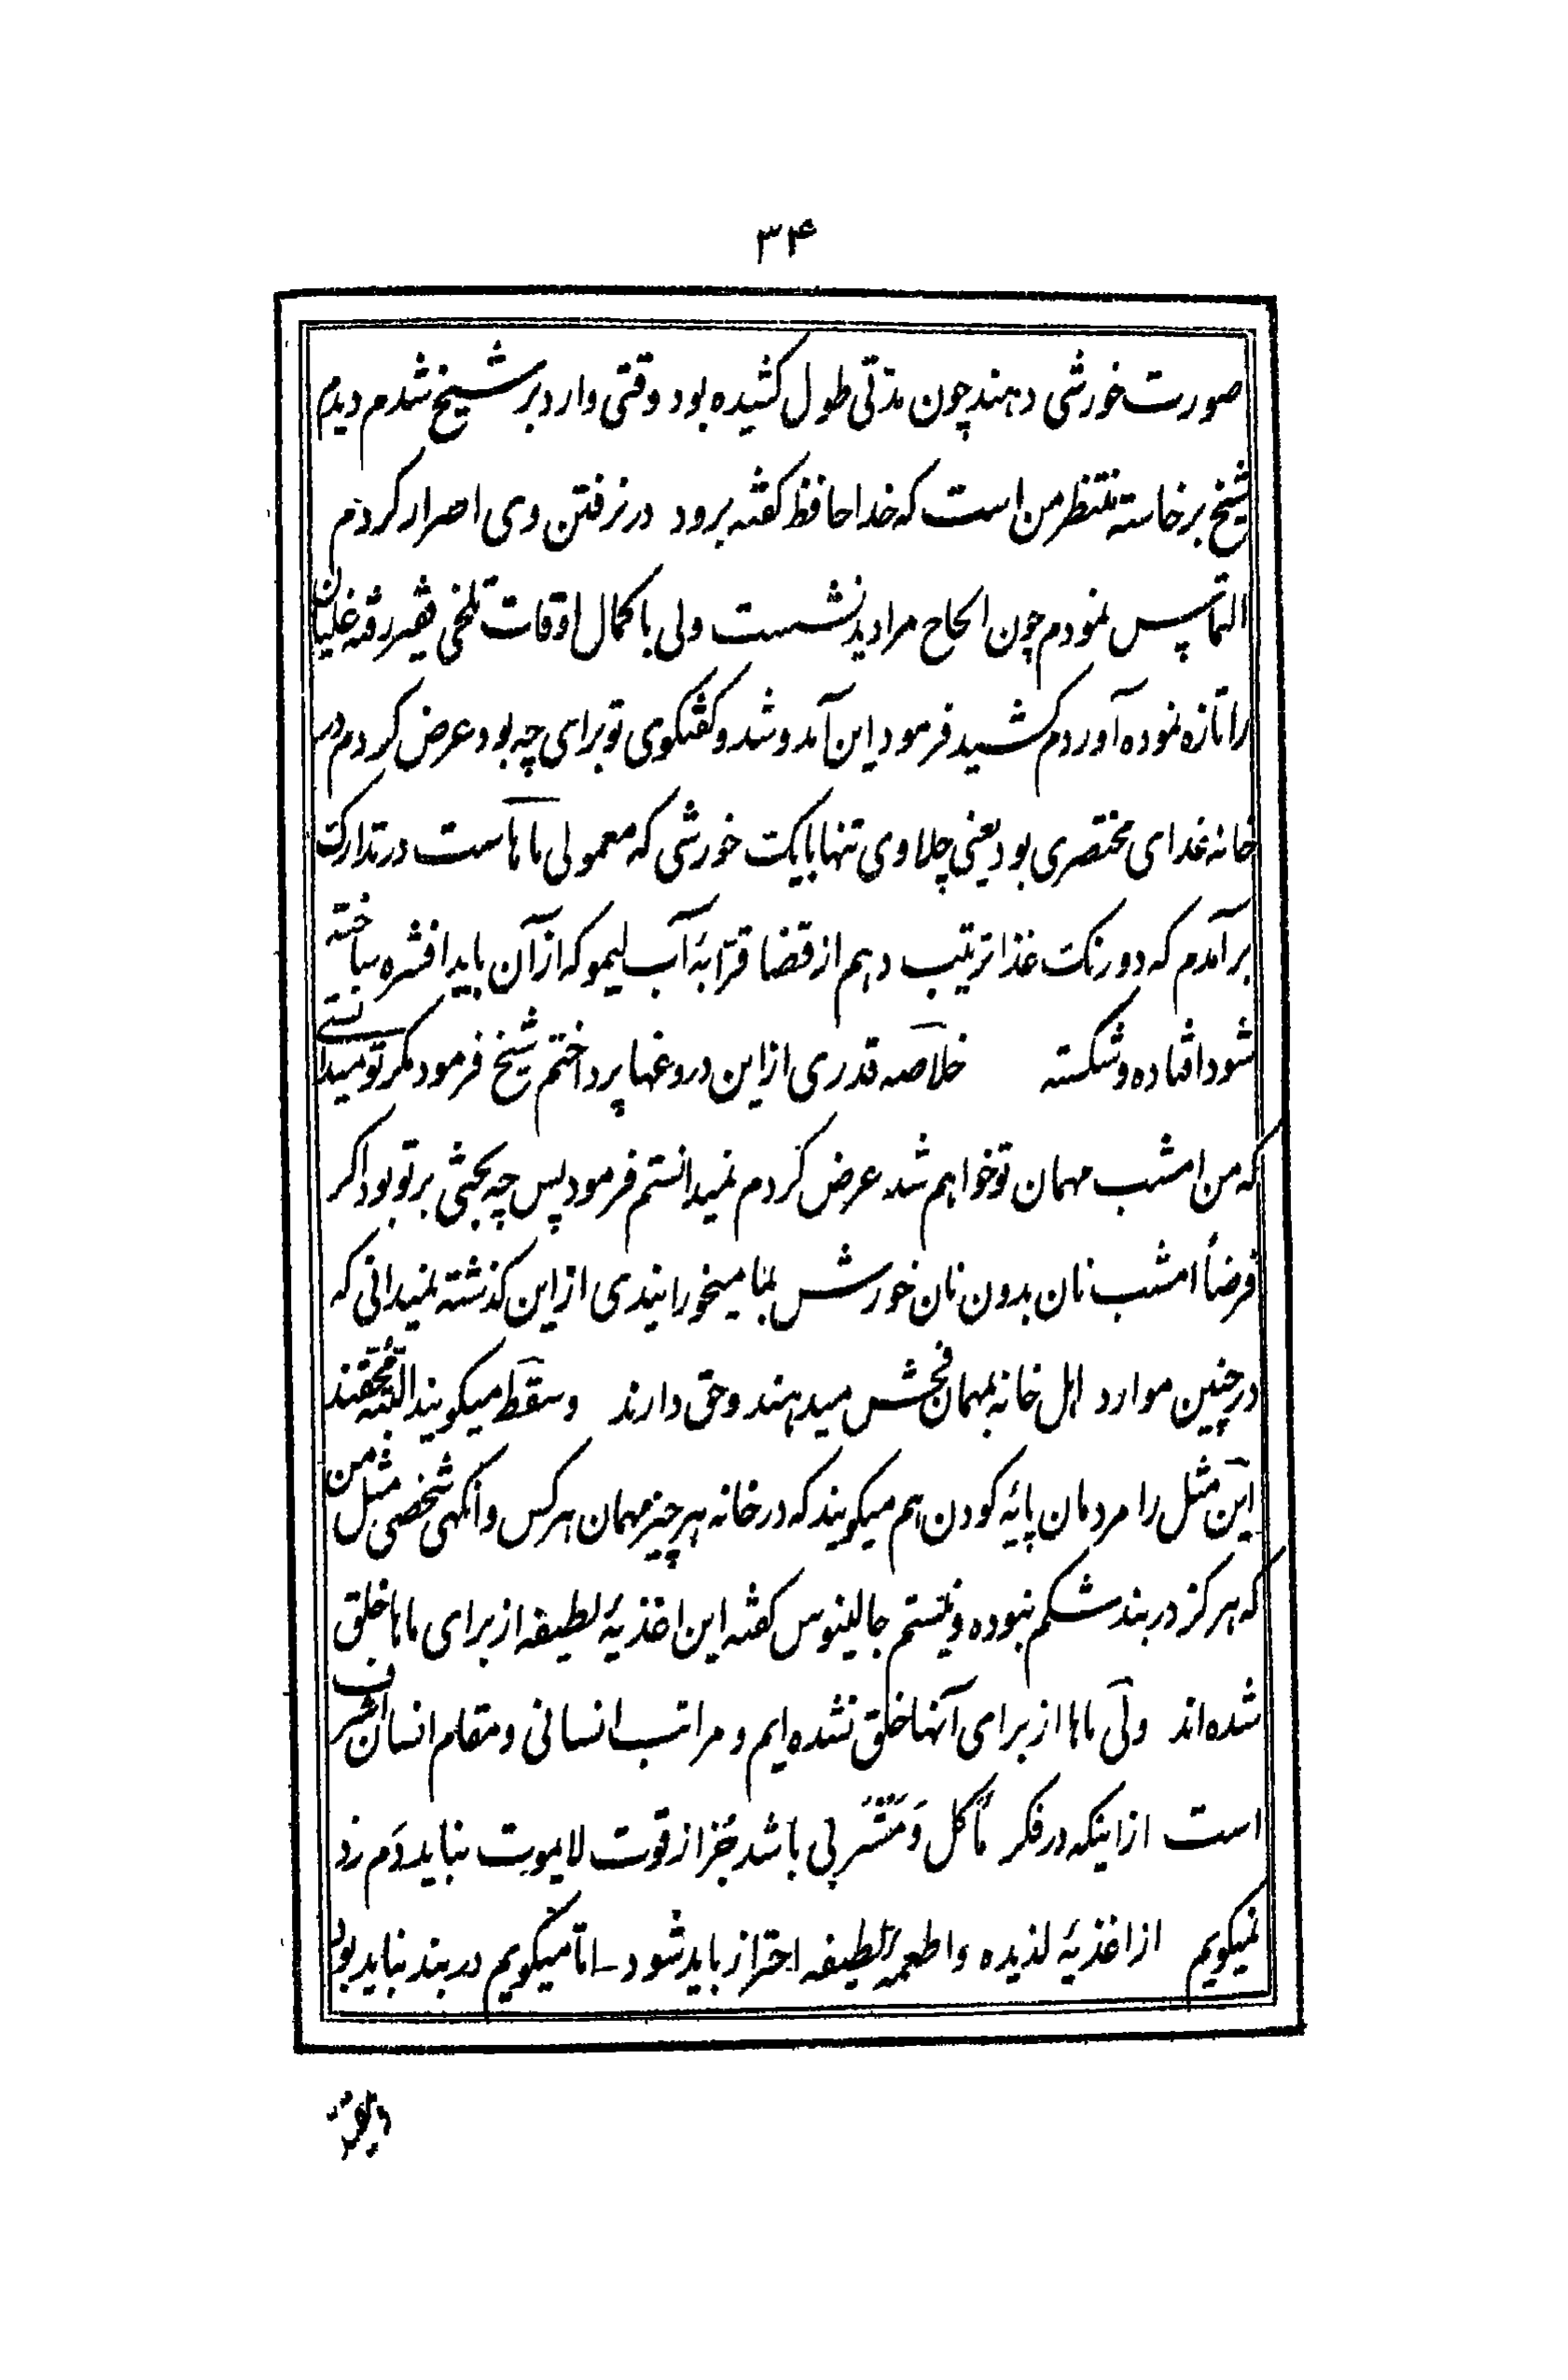 ۳۴
صورت خورشی دهند چون مدتی طول کشیده بود وقتی وارد بر شیخ شدم دیدم
شیخ برخاسته منتظر من است که خداحافظ کفته برود در نرفتن وی اصرار کردم
التماس نمودم چون الحاح مرا دید نشست ولی با کمال اوقات تلخی فقیر رفته غلیان
را تازه نموده آوردم کشید فرمود این آمد و شد و کفتکوی تو برای چه بود عرض کردم در
خانه غذای مختصری بود یعنی چلاوی تنها با یک خورشی که معمولی ماهاست در تدارک
برآمدم که دو رنک غذا ترتیب دهم از قضا قرّابهٔ آب لیمو که از آن باید افشره ساخته
شود افتاده و شکسته خلاصه قدری از این دروغها پرداختم شیخ فرمود مکر تو میدانستی
که من امشب مهمان تو خواهم شد عرض کردم نمیدانستم فرمود پس چه بحثی بر تو بود اکر
فرضاً امشب نان بدون نان خورش بما میخورایندی از این کذشته نمیدانی که
در چنین موارد اهل خانه بمهمان فحش میدهند و حق دارند و سقط میکویند البته محقند
این مثل را مردمان پایهٔ کودن هم میکویند که در خانه هر چیز مهمان هر کس وانکهی شخصی مثل من
که هرکز در بند شکم نبوده و نیستم جالینوس کفته این اغذیهٔ لطیفه از برای ماها خلق
شده اند ولی ماها از برای آنها خلق نشده ایم و مراتب انسانی و مقام انسان اشرف
است از اینکه در فکر مأکل وَ مَشْرَبی باشد جُز از قوت لایموت نباید دَم زد
نمیکویم از اغذیهٔ لذیده و اطعمهٔ لطیفه احتراز باید شود ــ امّا میکویم در بند نباید بود